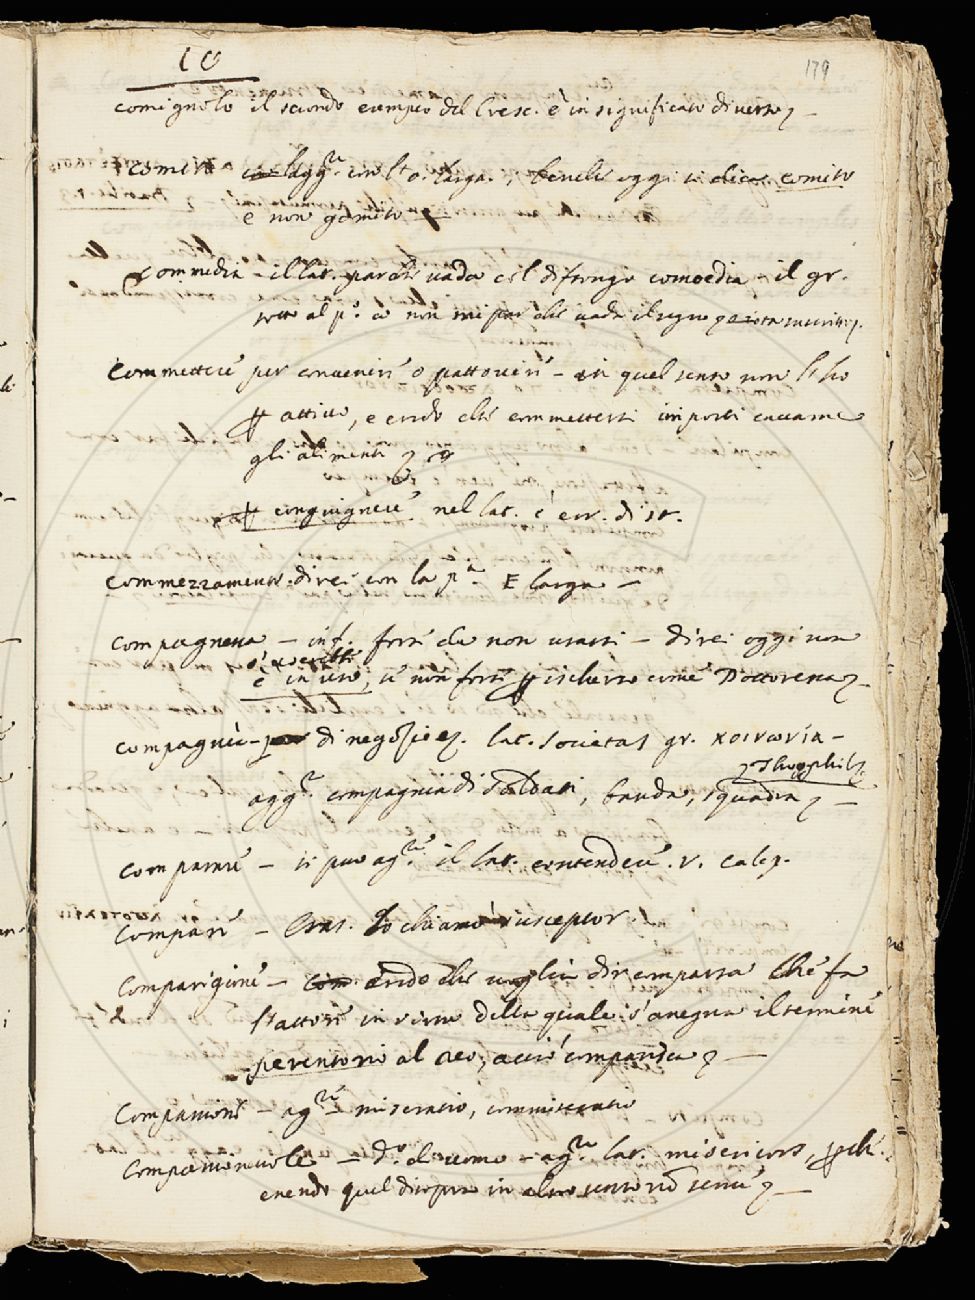 10
179
comignolo il secondo esempio del Cresc. è in significato diverso
comito agg.re con l'o larga, benche oggi si dica comito
e non gomito
commedia - il lat. par che vada col dittongo comoedia il gr.
al p.o non mi par che vada il segno
commettere per convenire o pattovire - in quel senso non l'ho
attivo, e credo che commettersi importi
gli alimenti
congiugnere nel lat. è err. di st.
commezzamento. direi con la p.a E larga -
compagnessa - inf. forse da non usarsi - direi oggi non
è in uso, se non forse ischerzo come Dottoressa
compagnie - di negozio lat. societas gr. κοινωνία -
Theophil.
agg.e compagnia di soldati, banda, squadra
comparare - si puo ag.re il lat. contendere. v. calep.
compare - Eras. lo chiamò susceptor.
comparigione - credo che voglia dir comparsa che fa
l'attore in virtu della quale s'assegna il termine
perentorio al reo, accio comparisca
compassione - ag.re miseratio, commiseratio
compassionevole - d.o d'uomo - ag.re lat. misericors, perche
essendo quel di sopra in altro senso non serve